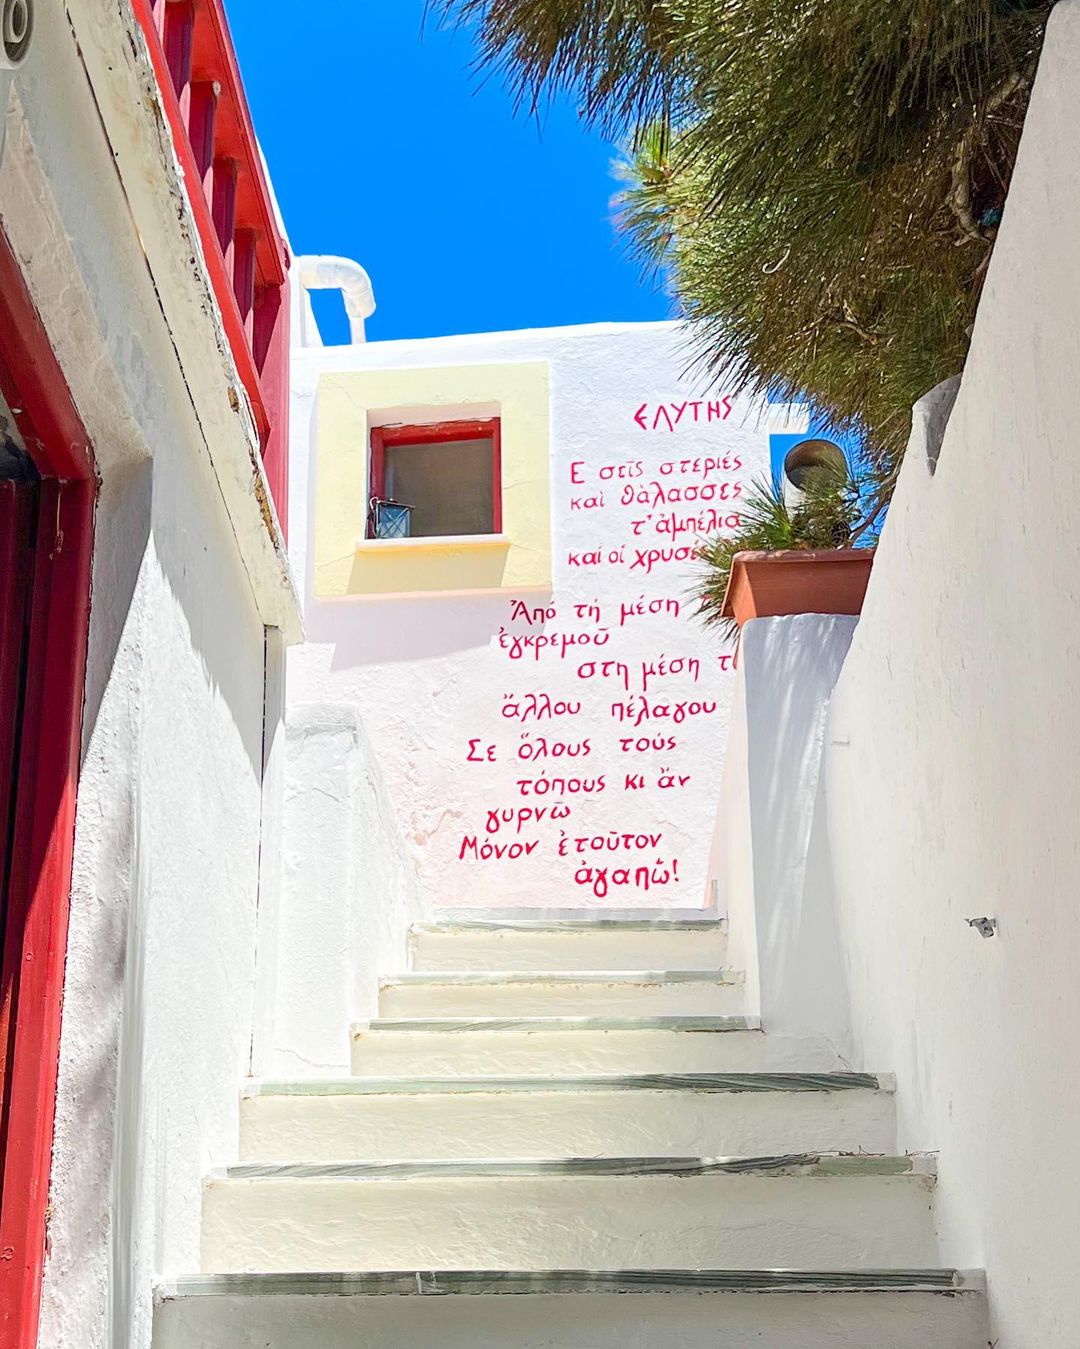 ΕΛΥΤΗΣ
Ε στῖς στεριές
καὶ θὰλασσες
τ' ἀμπέλια
καί οἱ
Ἀπό τή μέση
ἐγκρεμοῦ
στη μέση
ἄλλου πέλαγου
Σε ὅλους τούς
τόπους κι ἄν
γυρνῶ
Μόνον ἐτοῦτον
ἀγαπῶ!